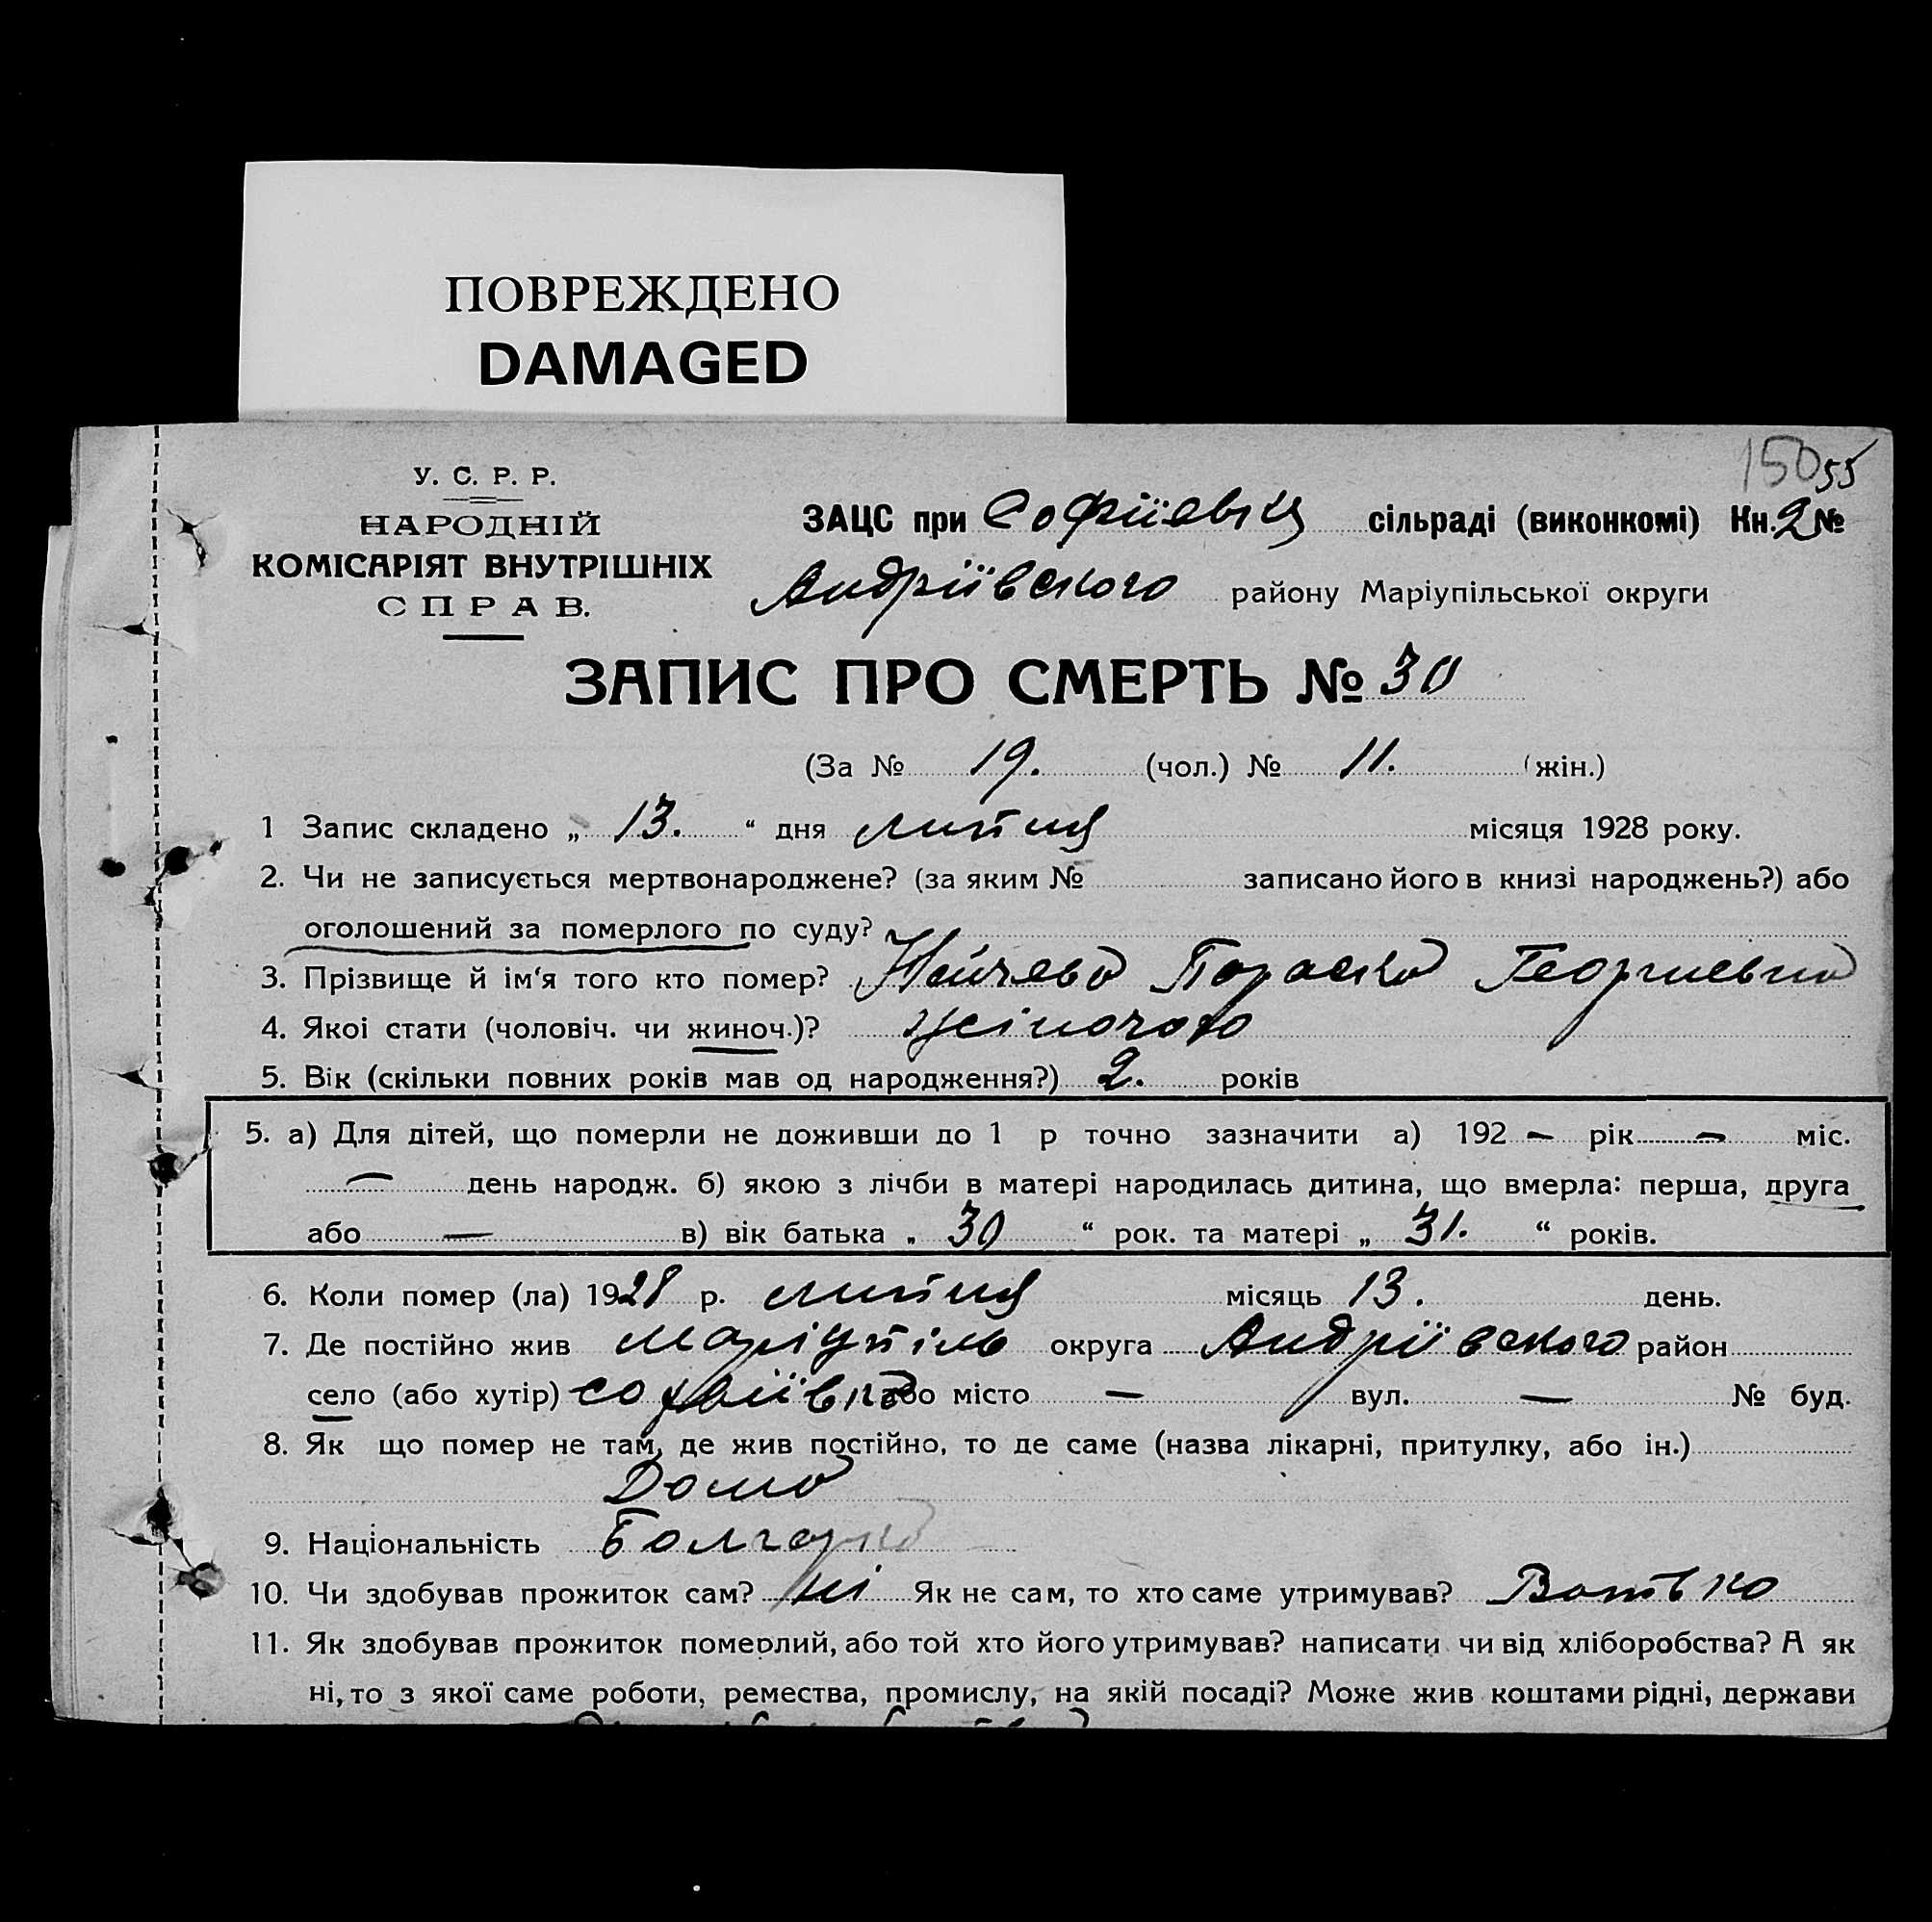 ПОВРЕЖДЕНО
DAMAGED
150 55
У. С. Р. Р.
НАРОДНІЙ
КОМІСАРІЯТ ВНУТРІШНІХ
СПРАВ.
ЗАЦС при Софіївці сільраді (виконкомі) Кн. 2 №
Андріївского району Маріупільської округи
ЗАПИС ПРО СМЕРТЬ № 30
(За № 19. (чол.) № 11. (жін.)
1 Запис складено „ 13. “ дня липця місяця 1928 року.
2. Чи не записується мертвонароджене? (за яким № записано його в книзі народжень?) або
оголошений за померлого по суду?
3. Прізвище й ім‘я того кто помер? Параска Георгиевна
4. Якоі стати (чоловіч. чи жиноч.)? жіночого
5. Вік (скільки повних років мав од народження?) 2. років
5. а) Для дітей, що померли не доживши до 1 р точно зазначити а) 192 — рік — міс.
— день народж. б) якою з лічби в матері народилась дитина, що вмерла: перша, друга
або — в) вік батька „ 30 “ рок. та матері „ 31. “ років.
6. Коли помер (ла) 1928 р. липця місяць 13. день.
7. Де постійно жив Маріупіль округа Андріївского район
село (або хутір) Софіївка або місто — вул. — № буд.
8. Як що помер не там, де жив постійно, то де саме (назва лікарні, притулку, або ін.)
Дома
9. Національність Болгарка
10. Чи здобував прожиток сам? ні Як не сам, то хто саме утримував? Батько
11. Як здобував прожиток померлий, або той хто його утримував? написати чи від хліборобства? А як
ні, то з якої саме роботи, ремества, промислу, на якій посаді? Може жив коштами рідні, держави